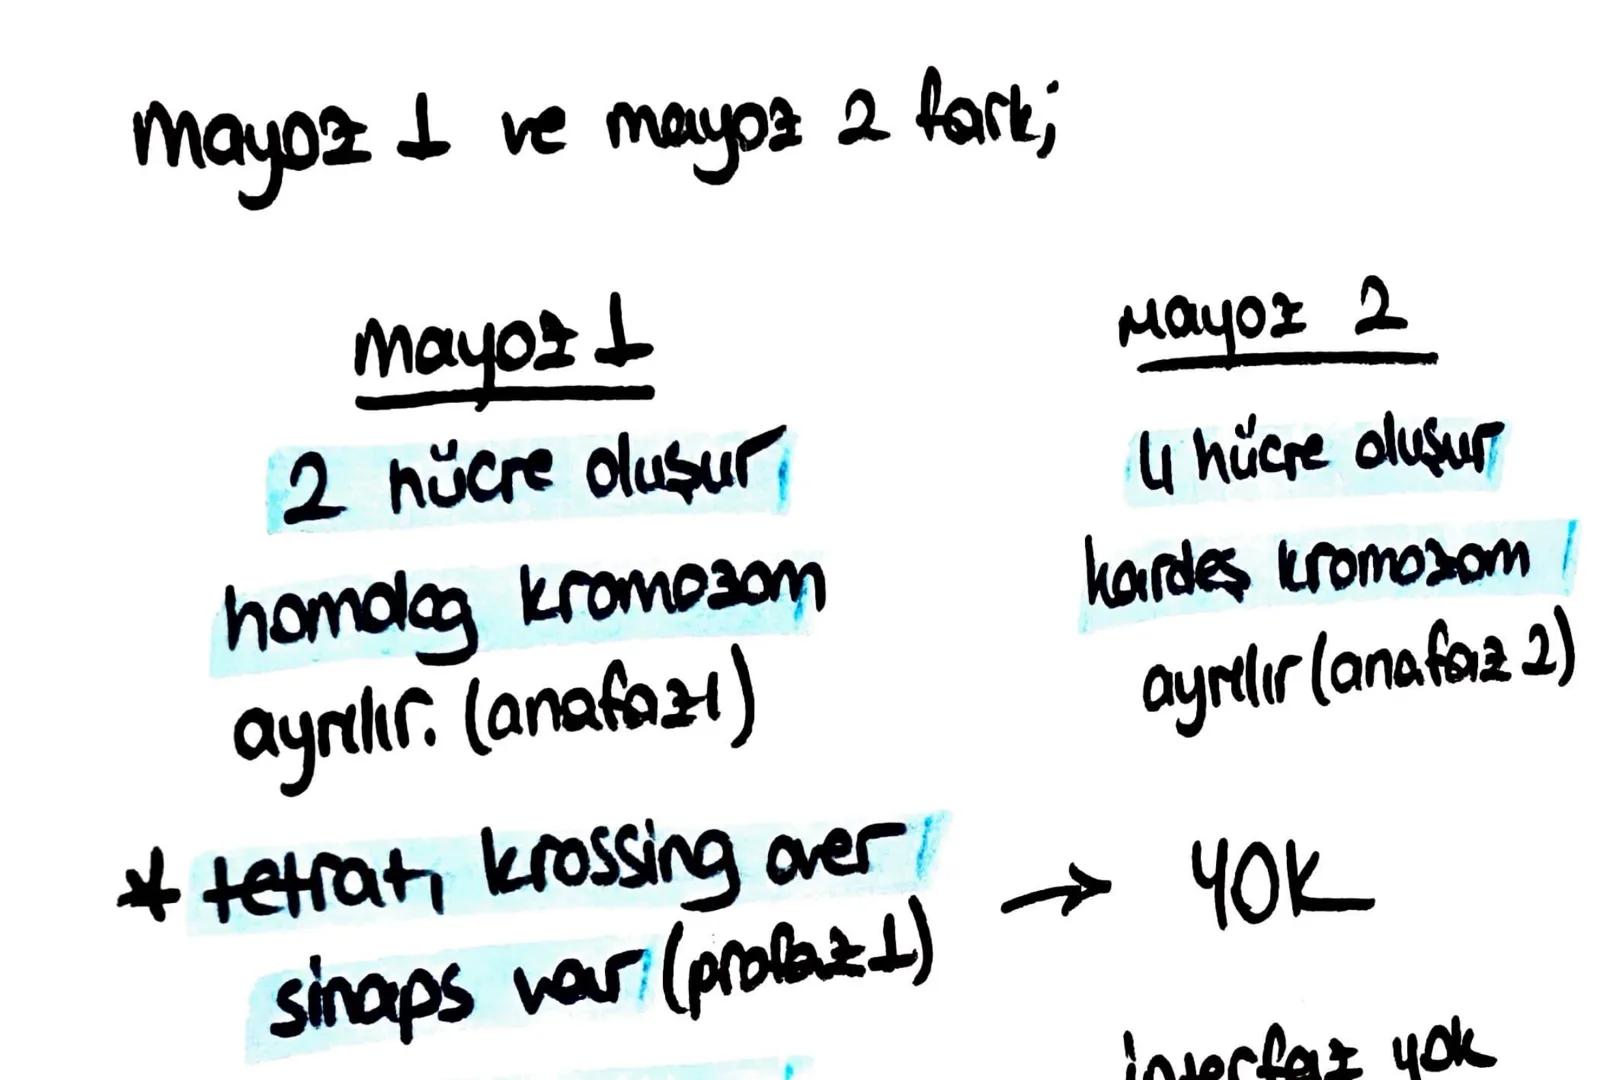 mayoz 1 ve mayoz 2 fark;
mayoz 1
Mayoz 2
2 hücre oluşur
4 hücre oluşur
homolog kromozom
kardeş kromozom
ayrılır. (anafaz1)
ayrılır (anafaz 2)
* tetrat, krossing over
→ YOK
sinaps var (profaz 1)
interfaz yok